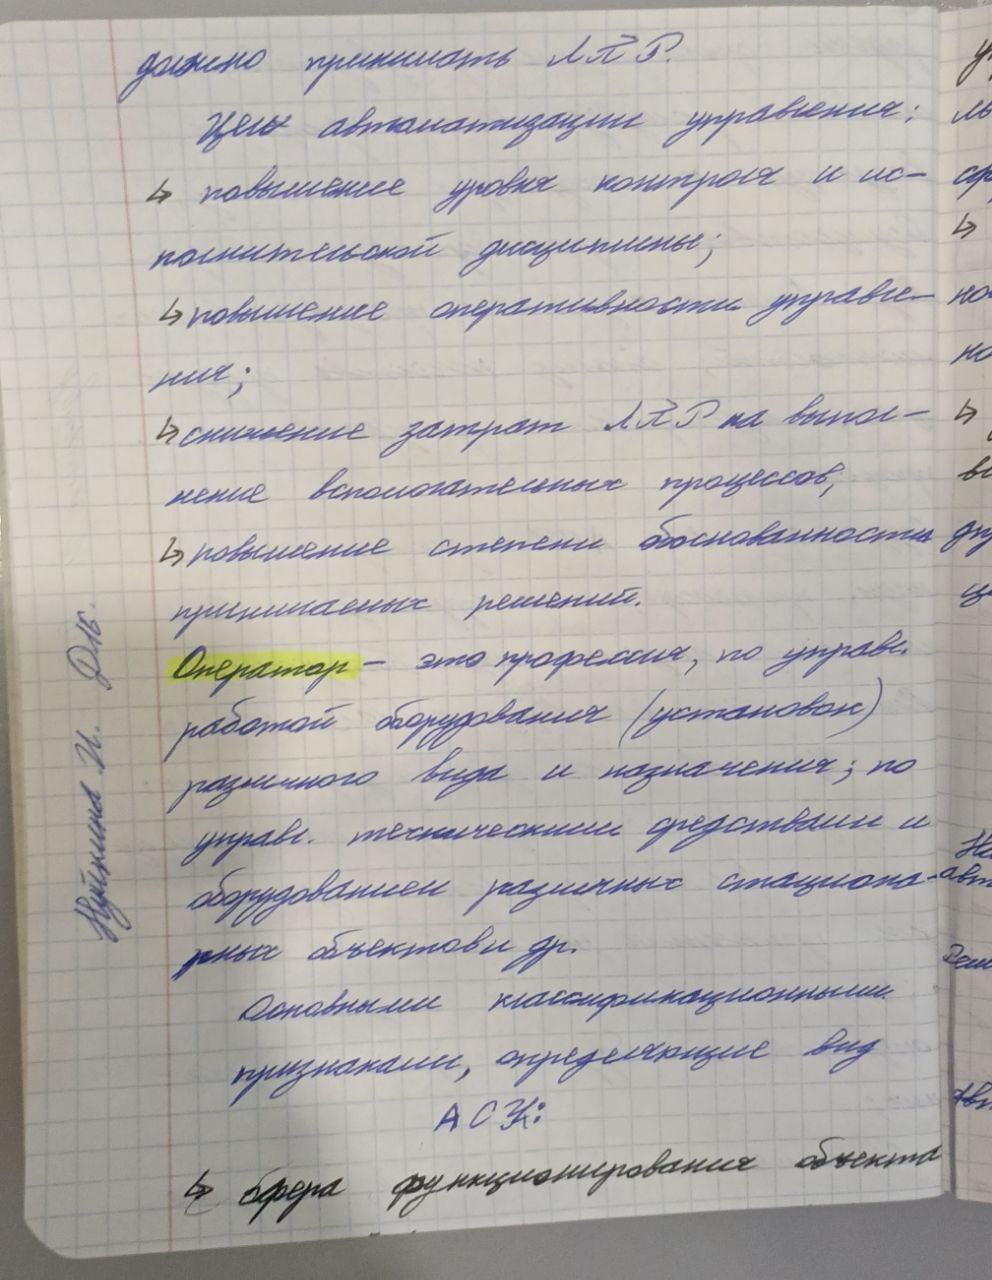 должно принимать ЛПР.
Цели автоматизации управления:
↳ повышение уровня контроля и ис-
полнительской дисциплины;
↳ повышение оперативности управле-
ния;
↳ снижение затрат ЛПР на выпол-
нение вспомогательных процессов;
↳ повышение степени обоснованности
принимаемых решений.
Оператор – это профессия, по управл.
работой оборудования (установок)
различного вида и назначения; по
управл. техническими средствами и
оборудованием различных стациона-
рных объектов и др.
Основными классификационными
признаками, определяющие вид
АСУ:
↳ сфера функционирования объекта